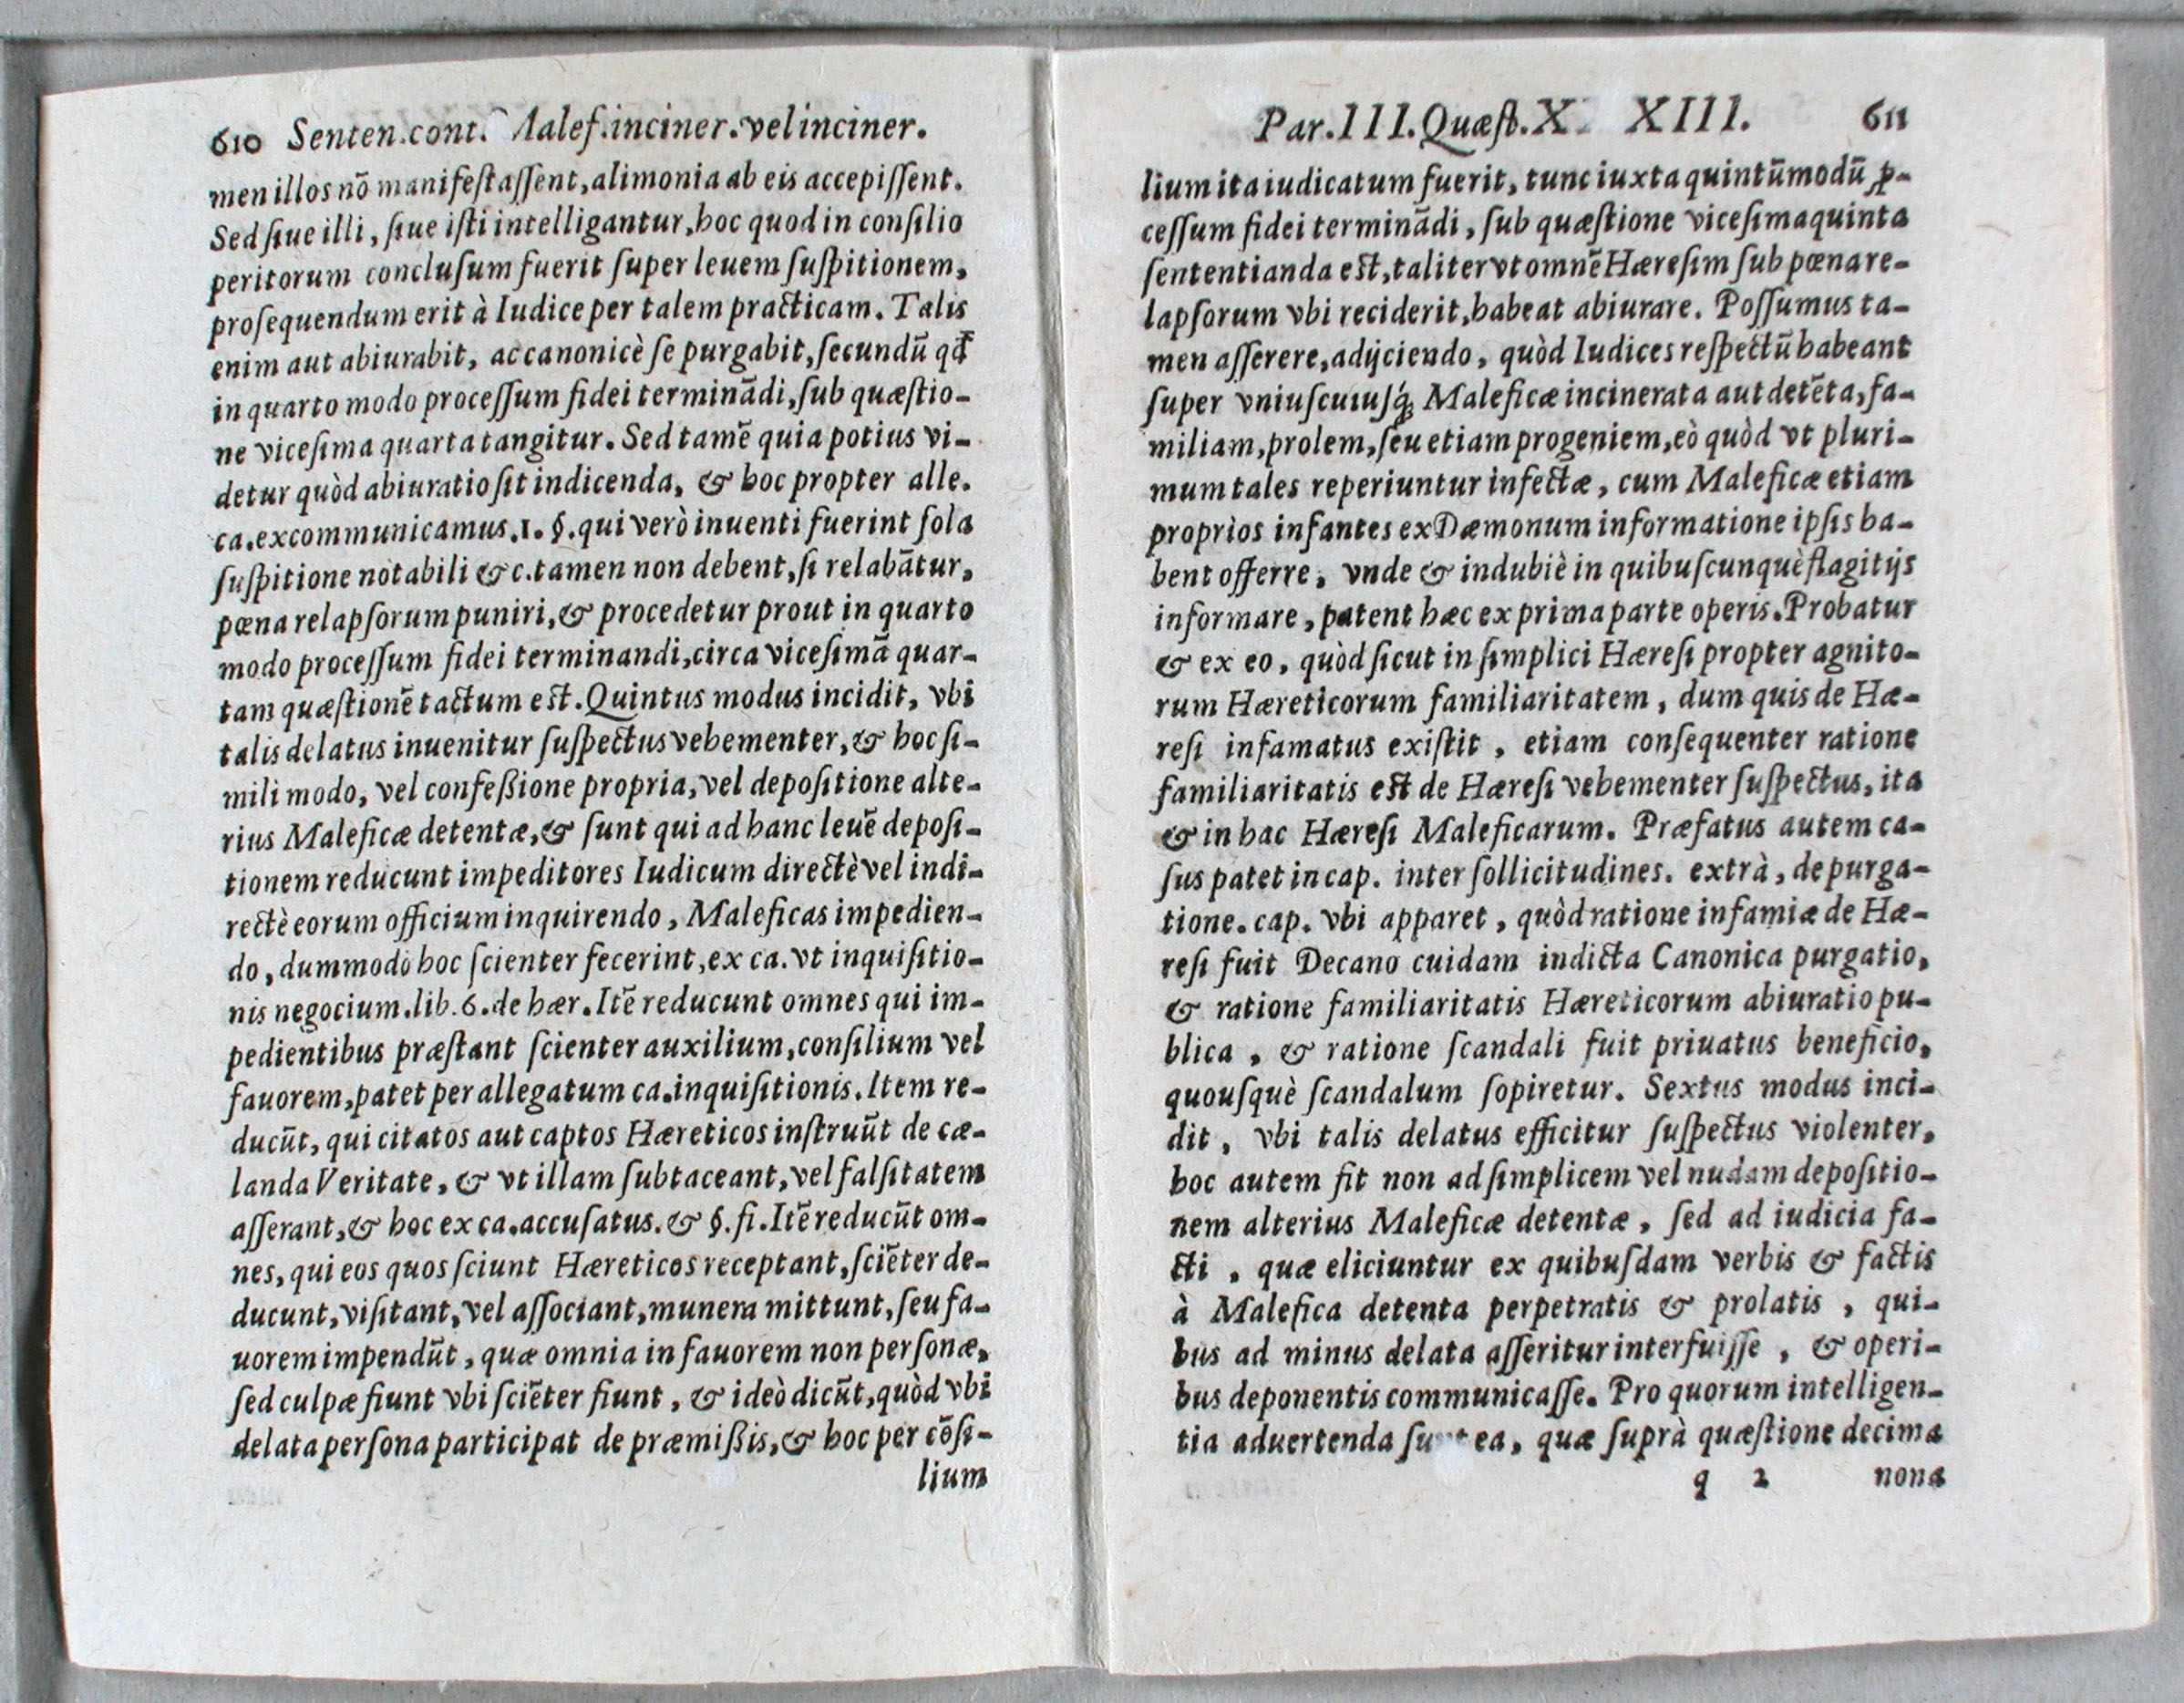 610 Senten.cont. Malef.inciner.vel inciner.
men illos nõ manifeſtaſſent, alimonia ab eis accepiſſent.
Sed ſiue illi, ſiue iſti intelligantur, hoc quod in conſilio
peritorum concluſum fuerit ſuper leuem ſuſpitionem,
proſequendum erit à Iudice per talem practicam. Talis
enim aut abiurabit, ac canonicè ſe purgabit, ſecundũ qđ
in quarto modo proceſſum fidei terminãdi, ſub quæſtio-
ne viceſima quarta tangitur. Sed tamẽ quia potius vi-
detur quòd abiuratio ſit indicenda, & hoc propter alle.
ca. excommunicamus. 1. §. qui verò inuenti fuerint ſola
ſuſpitione notabili &c. tamen non debent, ſi relabãtur,
pœna relapſorum puniri, & procedetur prout in quarto
modo proceſſum fidei terminandi, circa viceſimã quar-
tam quæſtionẽ tactum eſt. Quintus modus incidit, vbi
talis delatus inuenitur ſuſpectus vehementer, & hoc ſi-
mili modo, vel confeßione propria, vel depoſitione alte-
rius Maleficæ detentæ, & ſunt qui ad hanc leuẽ depoſi-
tionem reducunt impeditores Iudicum directè vel indi-
rectè eorum officium inquirendo, Maleficas impedien-
do, dummodo hoc ſcienter fecerint, ex ca. vt inquiſitio-
nis negocium. lib. 6. de hær. Itẽ reducunt omnes qui im-
pedientibus præſtant ſcienter auxilium, conſilium vel
fauorem, patet per allegatum ca. inquiſitionis. Item re-
ducũt, qui citatos aut captos Hæreticos inſtruũt de cæ-
landa Veritate, & vt illam ſubtaceant, vel falſitatem
aſſerant, & hoc ex ca. accuſatus. & §. fi. Itẽ reducũt om-
nes, qui eos quos ſciunt Hæreticos receptant, ſciẽter de-
ducunt, viſitant, vel aſſociant, munera mittunt, ſeu fa-
uorem impendũt, quæ omnia in fauorem non perſonæ,
ſed culpæ fiunt vbi ſciẽter fiunt, & ideò dicũt, quòd vbi
delata perſona participat de præmißis, & hoc per cõſi-
lium
Par. III. Quæſt. X XIII. 611
lium ita iudicatum fuerit, tunc iuxta quintũ modũ ꝓ-
ceſſum fidei terminãdi, ſub quæſtione viceſima quinta
ſententianda eſt, taliter vt omnẽ Hæreſim ſub pœna re-
lapſorum vbi reciderit, habeat abiurare. Poſſumus ta-
men aſſerere, adijciendo, quòd Iudices reſpectũ habeant
ſuper vniuſcuiuſq́; Maleficæ incinerata aut detẽta, fa-
miliam, prolem, ſeu etiam progeniem, eò quòd vt pluri-
mum tales reperiuntur infectæ, cum Maleficæ etiam
proprios infantes ex Dæmonum informatione ipſis ha-
bent offerre, vnde & indubiè in quibuſcunquè flagitijs
informare, patent hæc ex prima parte operis. Probatur
& ex eo, quòd ſicut in ſimplici Hæreſi propter agnito-
rum Hæreticorum familiaritatem, dum quis de Hæ-
reſi infamatus exiſtit, etiam conſequenter ratione
familiaritatis eſt de Hæreſi vehementer ſuſpectus, ita
& in hac Hæreſi Maleficarum. Præfatus autem ca-
ſus patet in cap. inter ſollicitudines. extrà, de purga-
tione. cap. vbi apparet, quòd ratione infamiæ de Hæ-
reſi fuit Decano cuidam indicta Canonica purgatio,
& ratione familiaritatis Hæreticorum abiuratio pu-
blica, & ratione ſcandali fuit priuatus beneficio,
quouſquè ſcandalum ſopiretur. Sextus modus inci-
dit, vbi talis delatus efficitur ſuſpectus violenter,
hoc autem fit non ad ſimplicem vel nudam depoſitio-
nem alterius Maleficæ detentæ, ſed ad iudicia fa-
cti, quæ eliciuntur ex quibuſdam verbis & factis
à Malefica detenta perpetratis & prolatis, qui-
bus ad minus delata aſſeritur interfuiſſe, & operi-
bus deponentis communicaſſe. Pro quorum intelligen-
tia aduertenda ſunt ea, quæ ſuprà quæſtione decima
q 2 nona